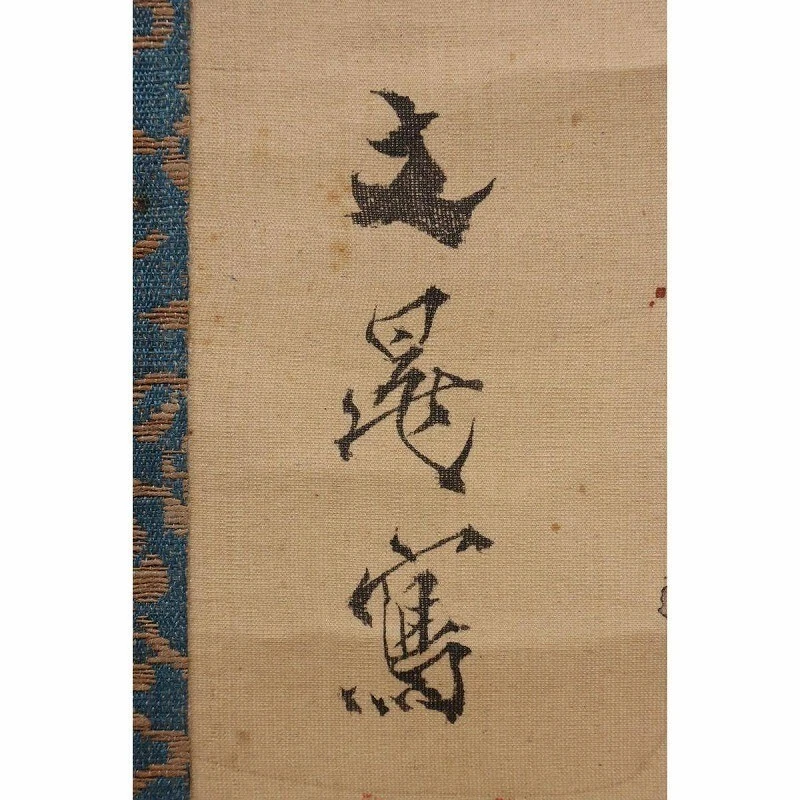 文晁寫